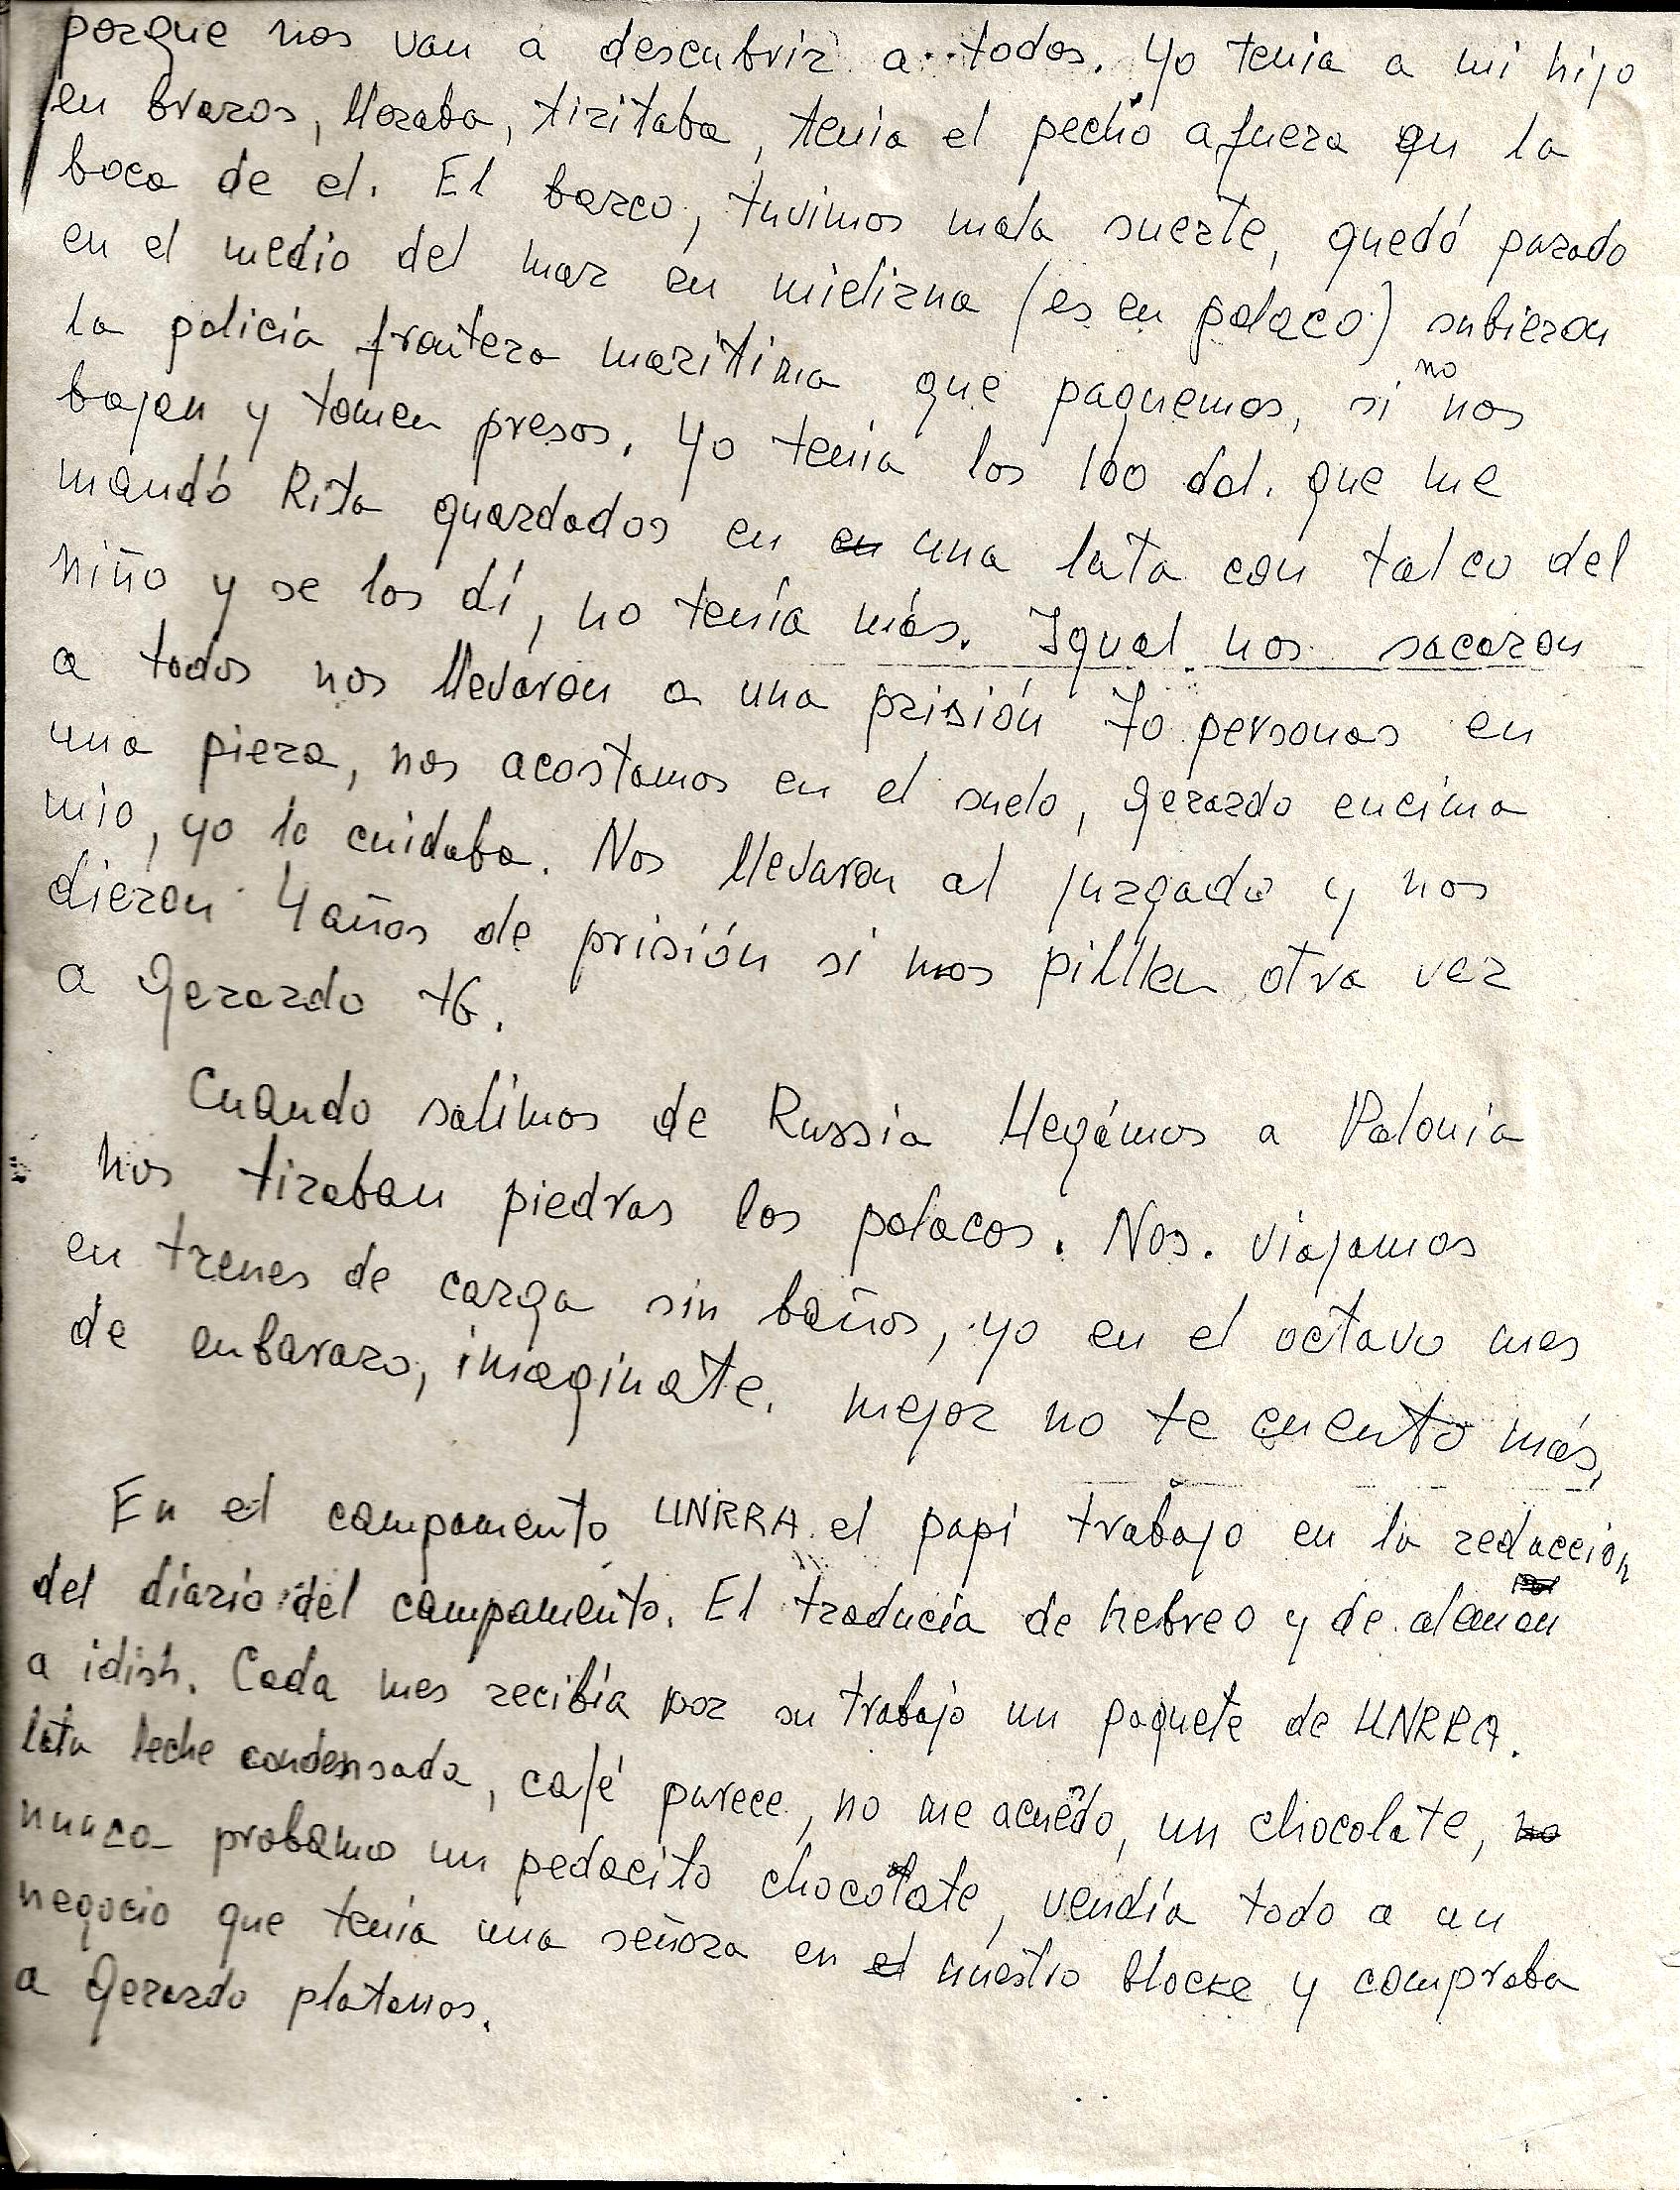 porque nos van a descubrir a todos. Yo tenia a mi hijo
en brazos, lloraba, tiritaba, tenia el pecho afuera en la
boca de el. El barco, tuvimos mala suerte, quedó parado
en el medio del mar en mielizna (es en polaco) subieron
la policia frontera maritima que paguemos, si no nos
bajen y tomen presos. Yo tenia los 100 dol. que me
mandó Rita guardados en una lata con talco del
niño y se los dí, no tenía más. Igual nos sacaron
a todos nos llevaron a una prisión 70 personas en
una pieza, nos acostamos en el suelo, Gerardo encima
mio, yo lo cuidaba. Nos llevaron al juzgado y nos
dieron 4 años de prisión si nos pillen otra vez
a Gerardo tb.
Cuando salimos de Russia llegámos a Polonia
nos tiraban piedras los polacos. Nos. viajamos
en trenes de carga sin baños, yo en el octavo mes
de enbarazo, imaginate. mejor no te cuento más,
En el campamento UNRRA el papi trabajo en la redaccion
del diario del campamento. El traducía de hebreo y de aleman
a idish. Cada mes recibía por su trabajo un paquete de UNRRA.
lata leche condensada, café parece, no me acuerdo, un chocolate,
nunca probamos un pedacito chocolate, vendía todo a un
negocio que tenía una señora en nuestro blocke y compraba
a Gerardo platanos.